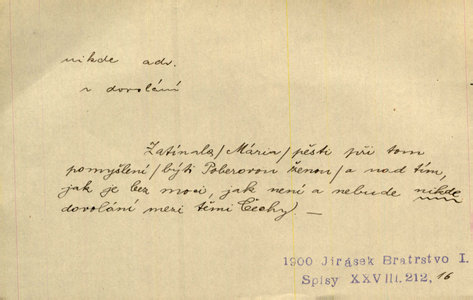 nikde adv.
v dovolání
Zatínala/Mária/pěsti při tom
pomyšlení/býti Poberovou ženou/a nad tím,
jak je bez moci, jak není a nebude nikde
dovolání mezi těmi Čechy. —
1900 Jirásek Bratrstvo I.
Spisy XXVIII. 212, 16